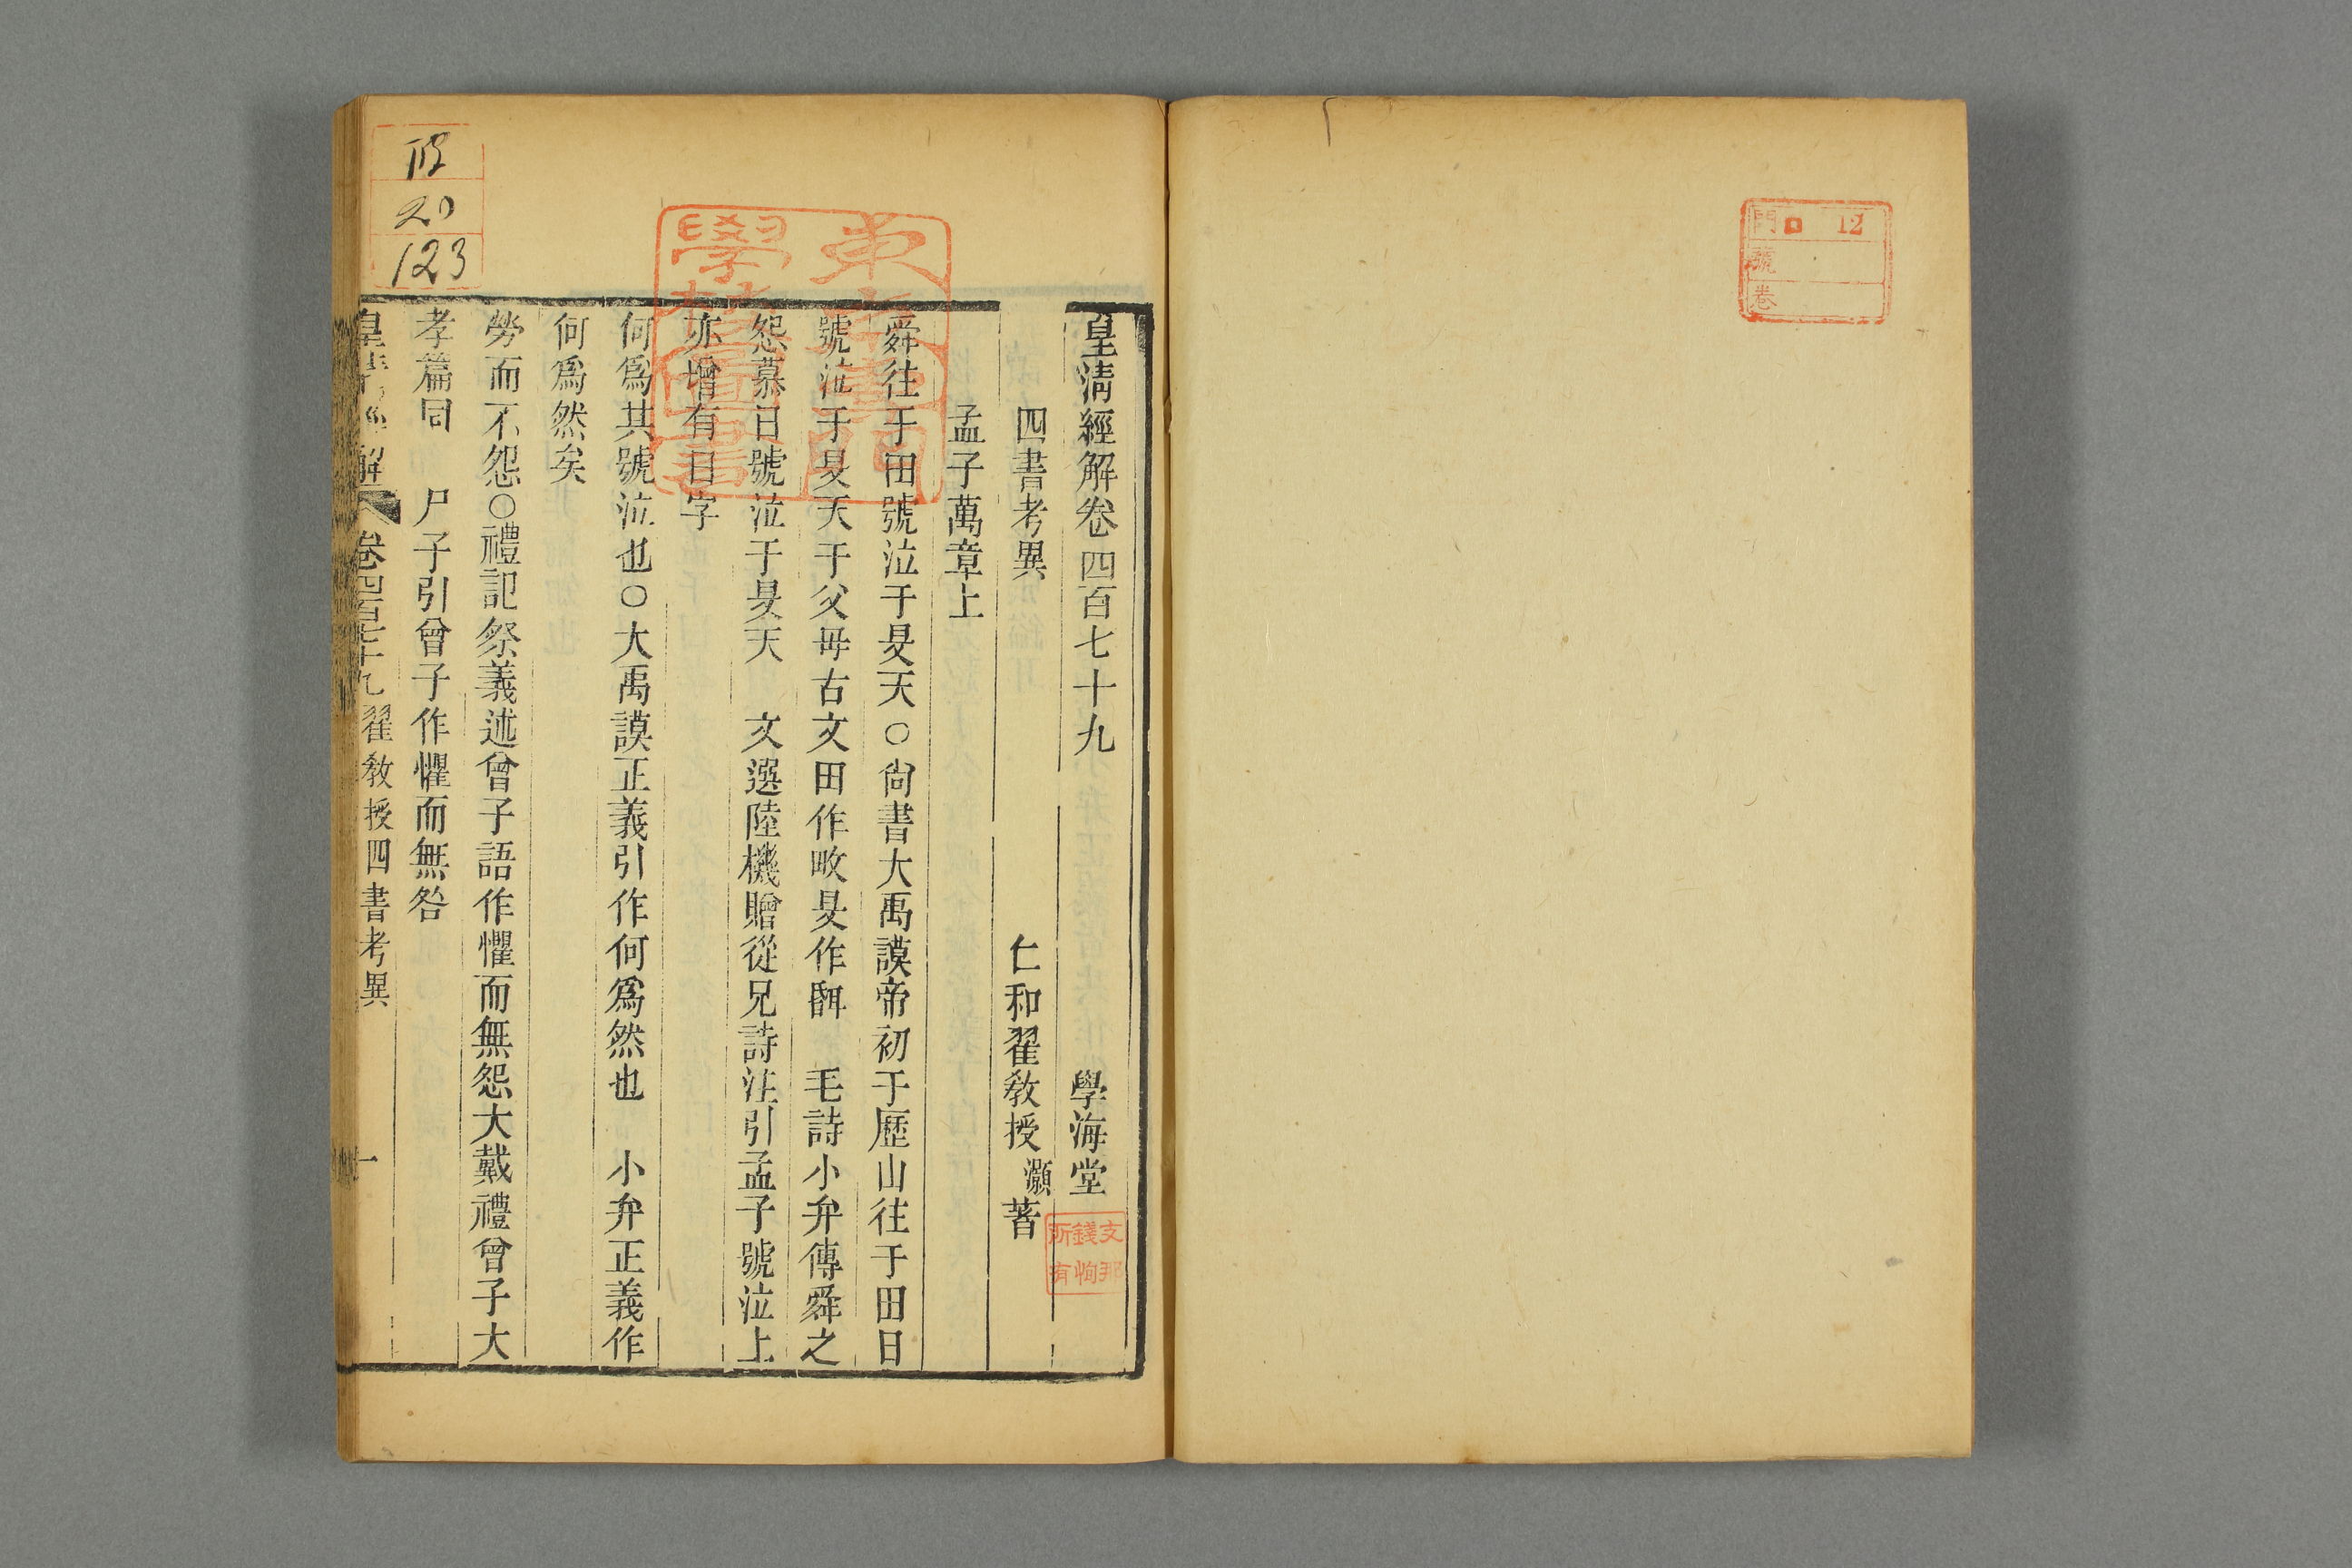 門 12
號
卷
皇清經解卷四百七十九 學海堂
四書考異 仁和翟教授灝著
孟子萬章上
舜往于田號泣于旻天○尙書大禹謨帝初于歷山往于田日
號泣于旻天于父母古文田作畋旻作𣊽 毛詩小弁傳舜之
怨慕日號泣于旻天 文選陸機贈從兄詩注引孟子號泣上
亦增有日字
何爲其號泣也○大禹謨正義引作何爲然也 小弁正義作
何爲然矣
勞而不怨○禮記祭義述曾子語作懼而無怨大戴禮曾子大
孝篇同 尸子引曾子作懼而無咎
皇清經解 卷四百七十九 翟教授四書考異 一
支那
錢恂
所有
20
123